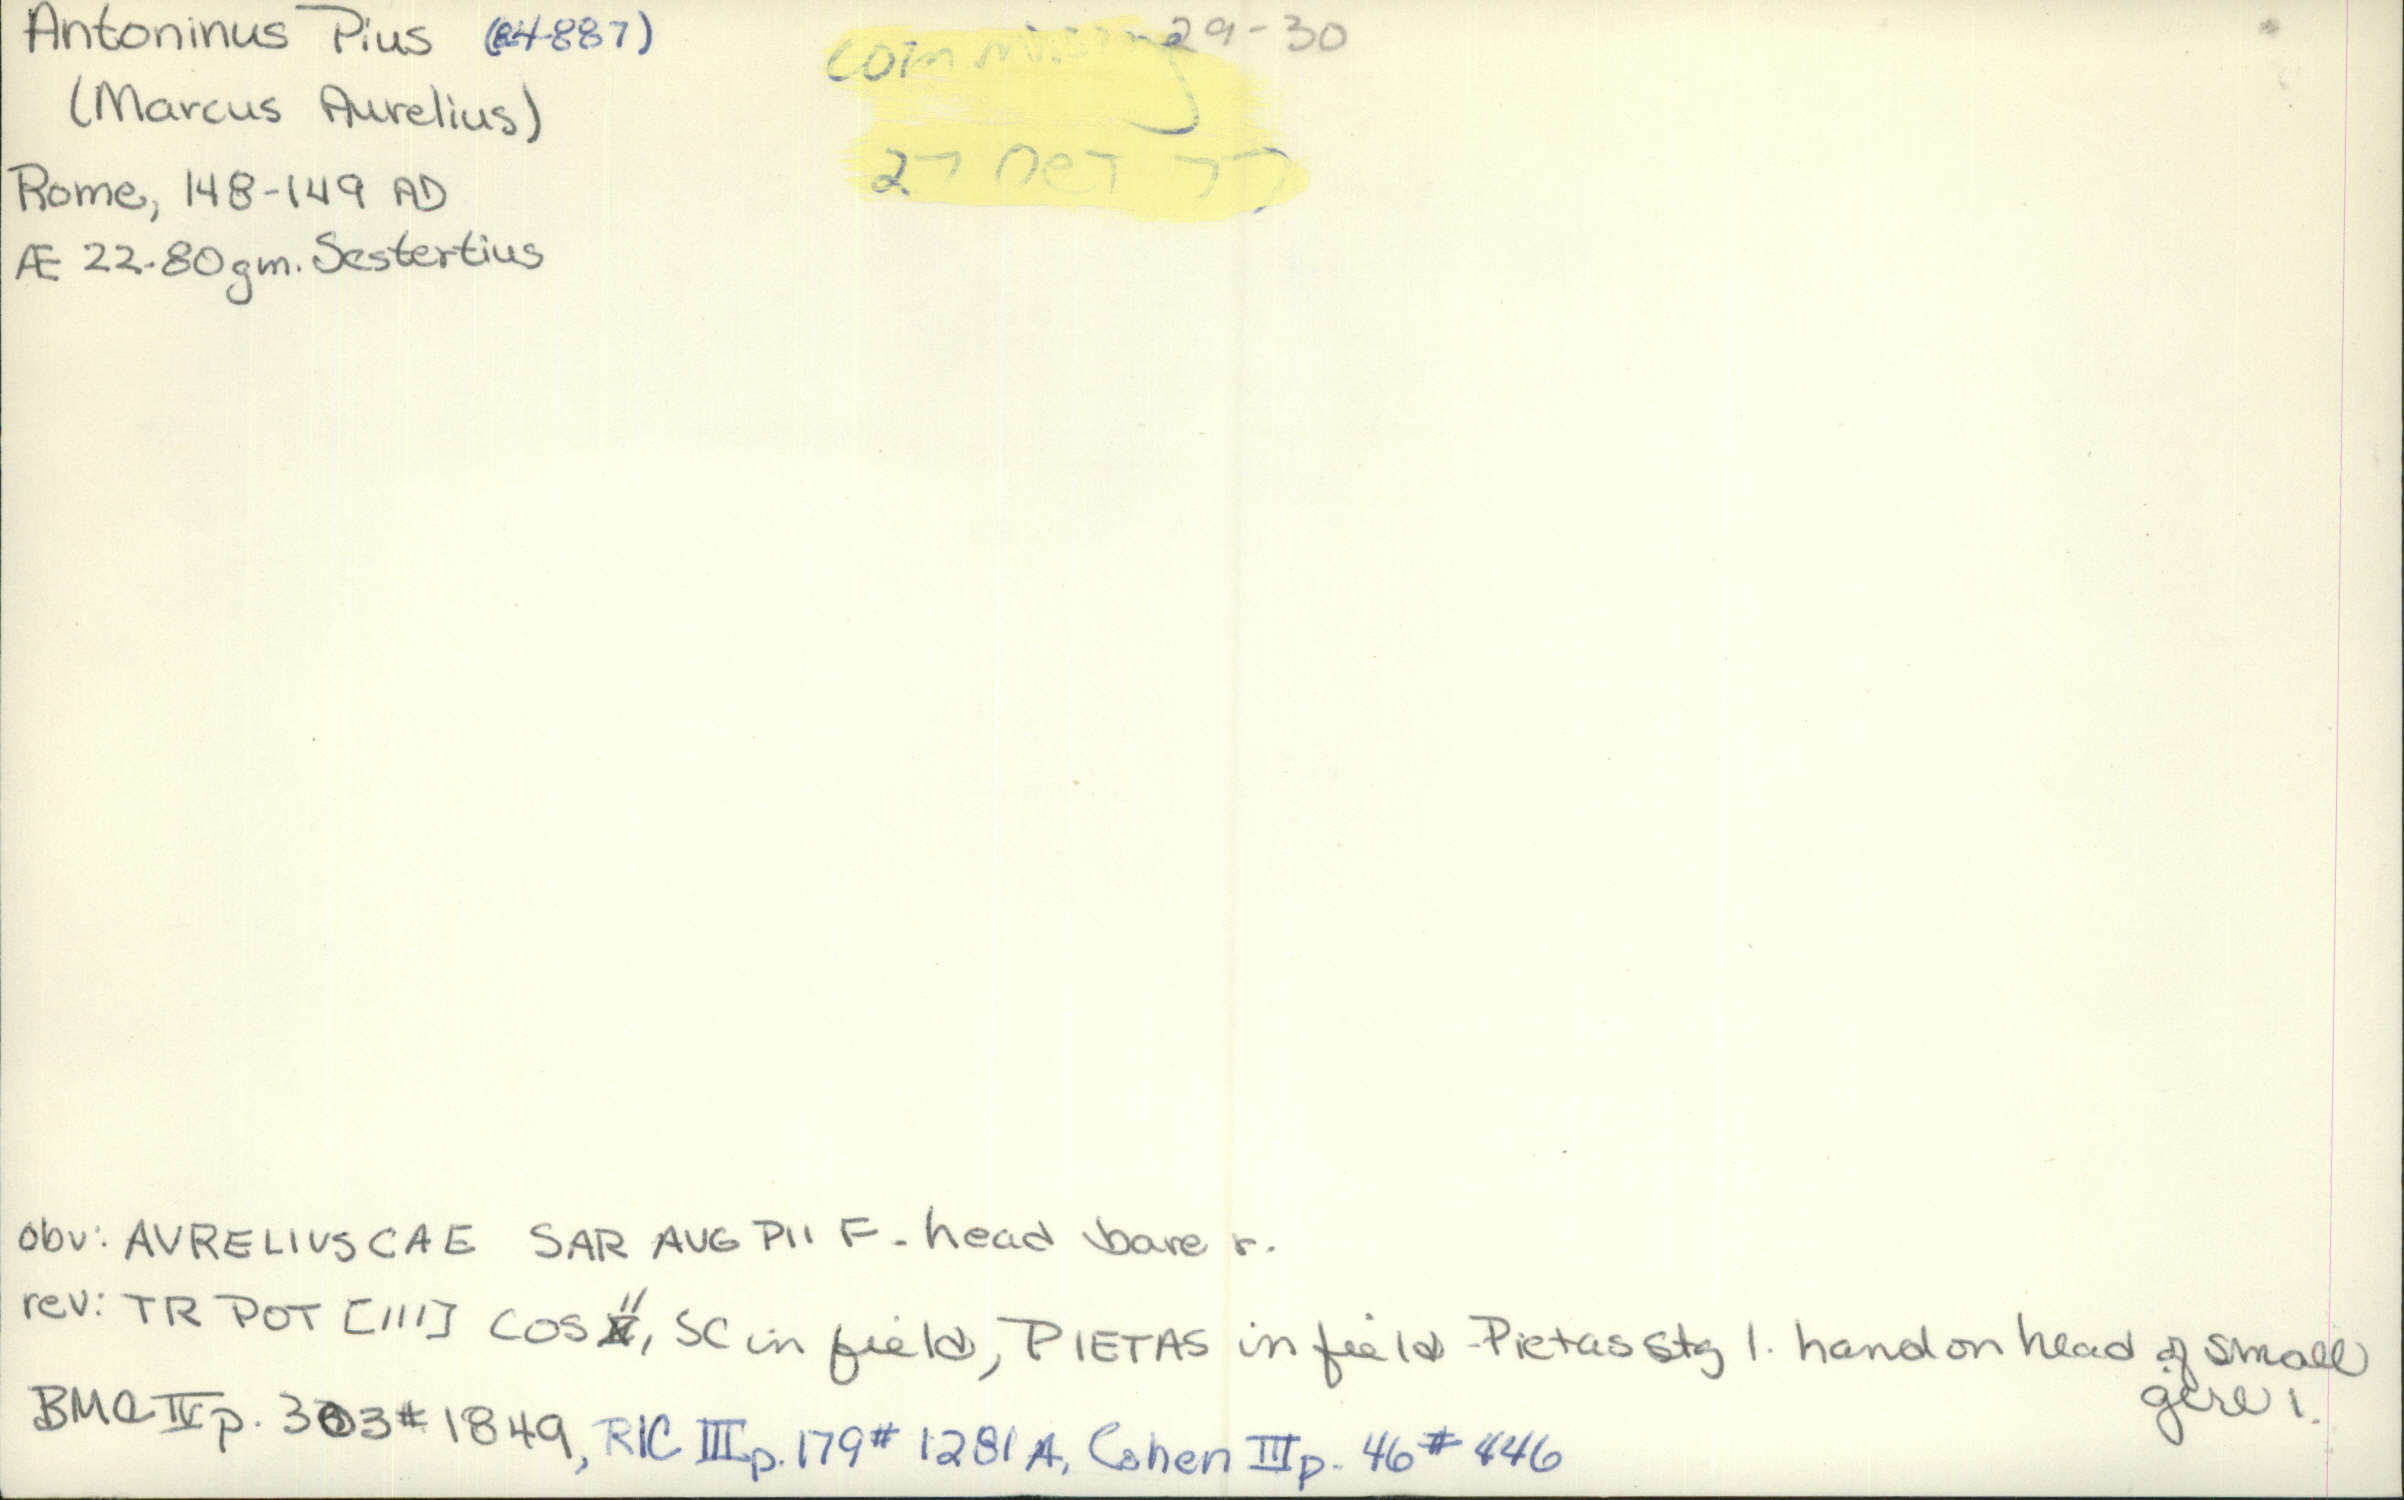 Antoninus Pius (84-887)
29-30
(Marcus Aurelius)
coin missing
27 OCT 77
Rome, 148-149 AD
Æ 22.80 gm. Sestertius
obv: AVRELIUS CAE SAR AUG PII F. head bare r.
rev: TR POT [III] COS II, SC in field, PIETAS in field - Pietas stg l. hand on head of small
girl l.
BMC IV p. 303 # 1849, RIC III p. 179 # 1281 A, Cohen III p. 46 # 446